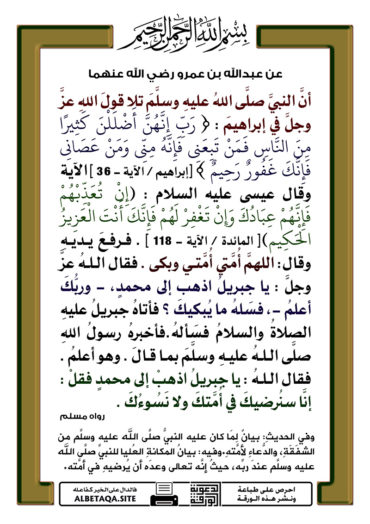 بسم الله الرحمن الرحيم
عن عبدالله بن عمرو رضي الله عنهما
أنَّ النبيَّ صلَّى اللهُ عليهِ وسلَّمَ تلا قولَ اللهِ عزَّ
وجلَّ في إبراهيمَ : ﴿ رَبِّ إِنَّهُنَّ أَضْلَلْنَ كَثِيرًا
مِنَ النَّاسِ فَمَنْ تَبِعَنِي فَإِنَّهُ مِنِّي وَمَنْ عَصَانِي
فَإِنَّكَ غَفُورٌ رَحِيمٌ ﴾ [إبراهيم / الآية - 36 ] الآيةَ
وقال عيسى عليه السلام : (إِنْ تُعَذِّبْهُمْ
فَإِنَّهُمْ عِبَادُكَ وَإِنْ تَغْفِرْ لَهُمْ فَإِنَّكَ أَنْتَ الْعَزِيزُ
الْحَكِيم) [ المائدة / الآية - 118 ] . فـرفـعَ يـديـهِ
وقال : اللهمَّ أُمَّتي أُمَّتـي وبكى . فقال اللـهُ عزَّ
وجلَّ : يا جبريلُ اذهب إلى محمدٍ، - وربُّكَ
أعلمُ -، فسَلهُ ما يُبكيكَ ؟ فأتاهُ جبريلُ عليهِ
الصلاةُ والسلامُ فسَألهُ.فأخبرهُ رسولُ اللهِ
صلَّى اللـهُ عليـهِ وسلَّمَ بمـا قـالَ . وهو أعلمُ .
فقال اللـهُ : يـا جبريلُ اذهبْ إلى محمدٍ فقلْ :
إنَّا سنُرضيكَ في أُمَّتكَ ولا نَسُوءُكَ .
رواه مسلم
وفي الحديثِ: بيانُ لِمَا كان عليه النبيُّ صلَّى اللَّه عليه وسلَّم من
الشفقةِ، والدعاءِ لأُمَّتِه.وفيه: بيانُ المكانةِ العُليا للنبيِّ صلَّى اللَّه
عليه وسلَّم عندَ ربِّه، حيثُ إنَّه تعالى وعدَه أن يُرضِيَه في أُمَّتِه.
احرص على طباعة
ونشر هذه الورقة
الدعوية
الورقة
فالدال على الخير كفاعله
ALBETAQA.SITE